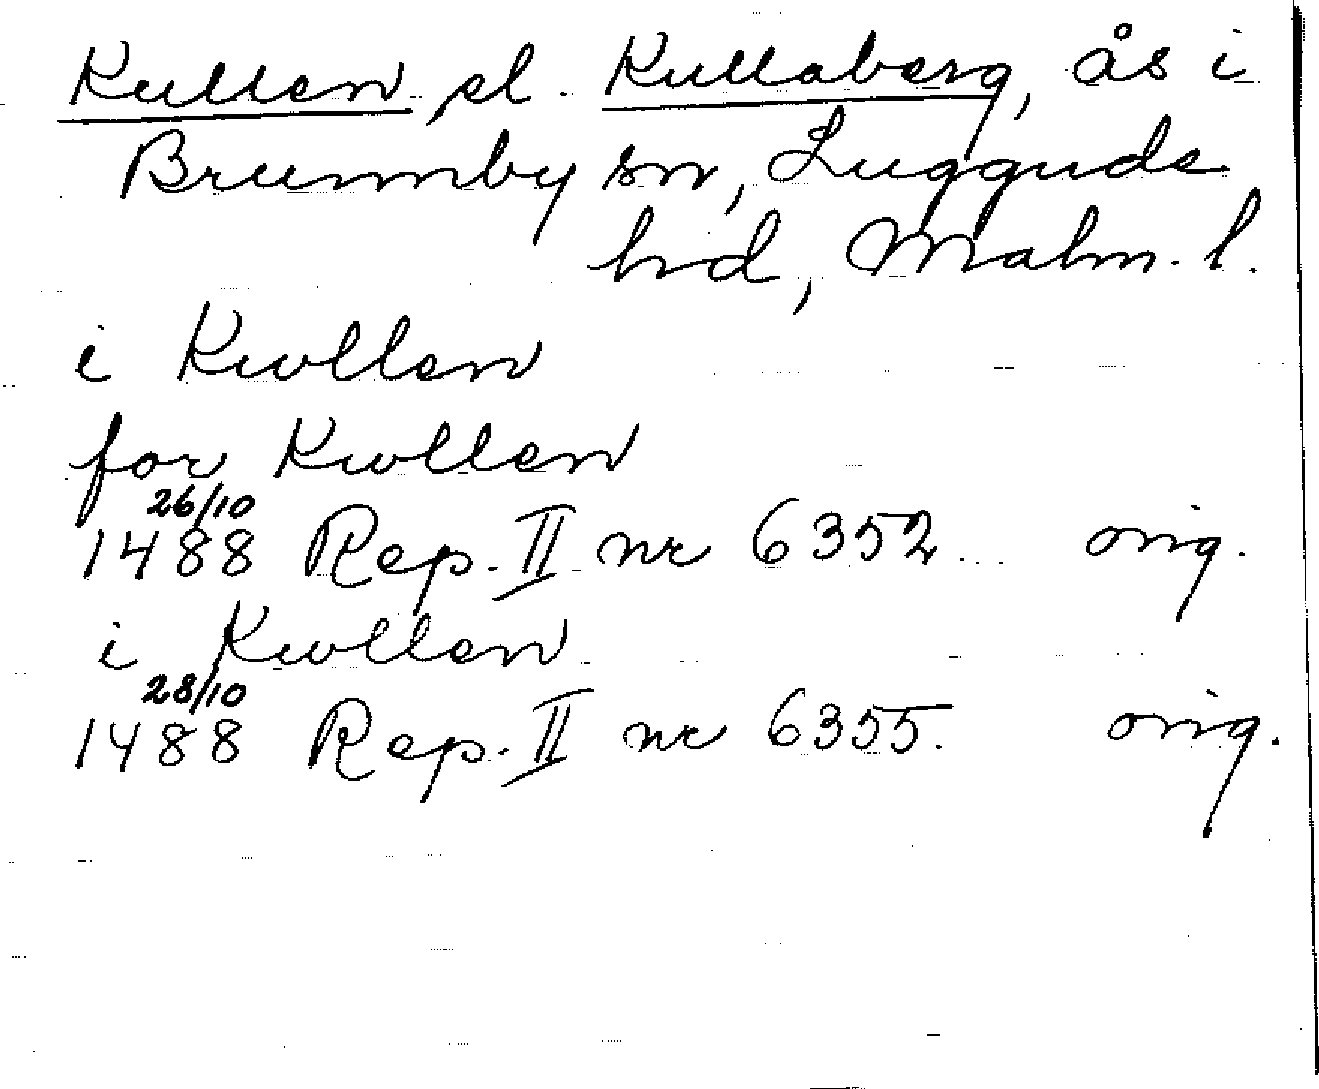 Kullen el. Kullaberg, ås i
Brunnby sn, Luggude
hd, Malm. l.
i Kwllen
for Kwllen
26/10
1488 Rep. II nr 6352 orig.
i Kwllen
28/10
1488 Rep. II nr 6355. orig.